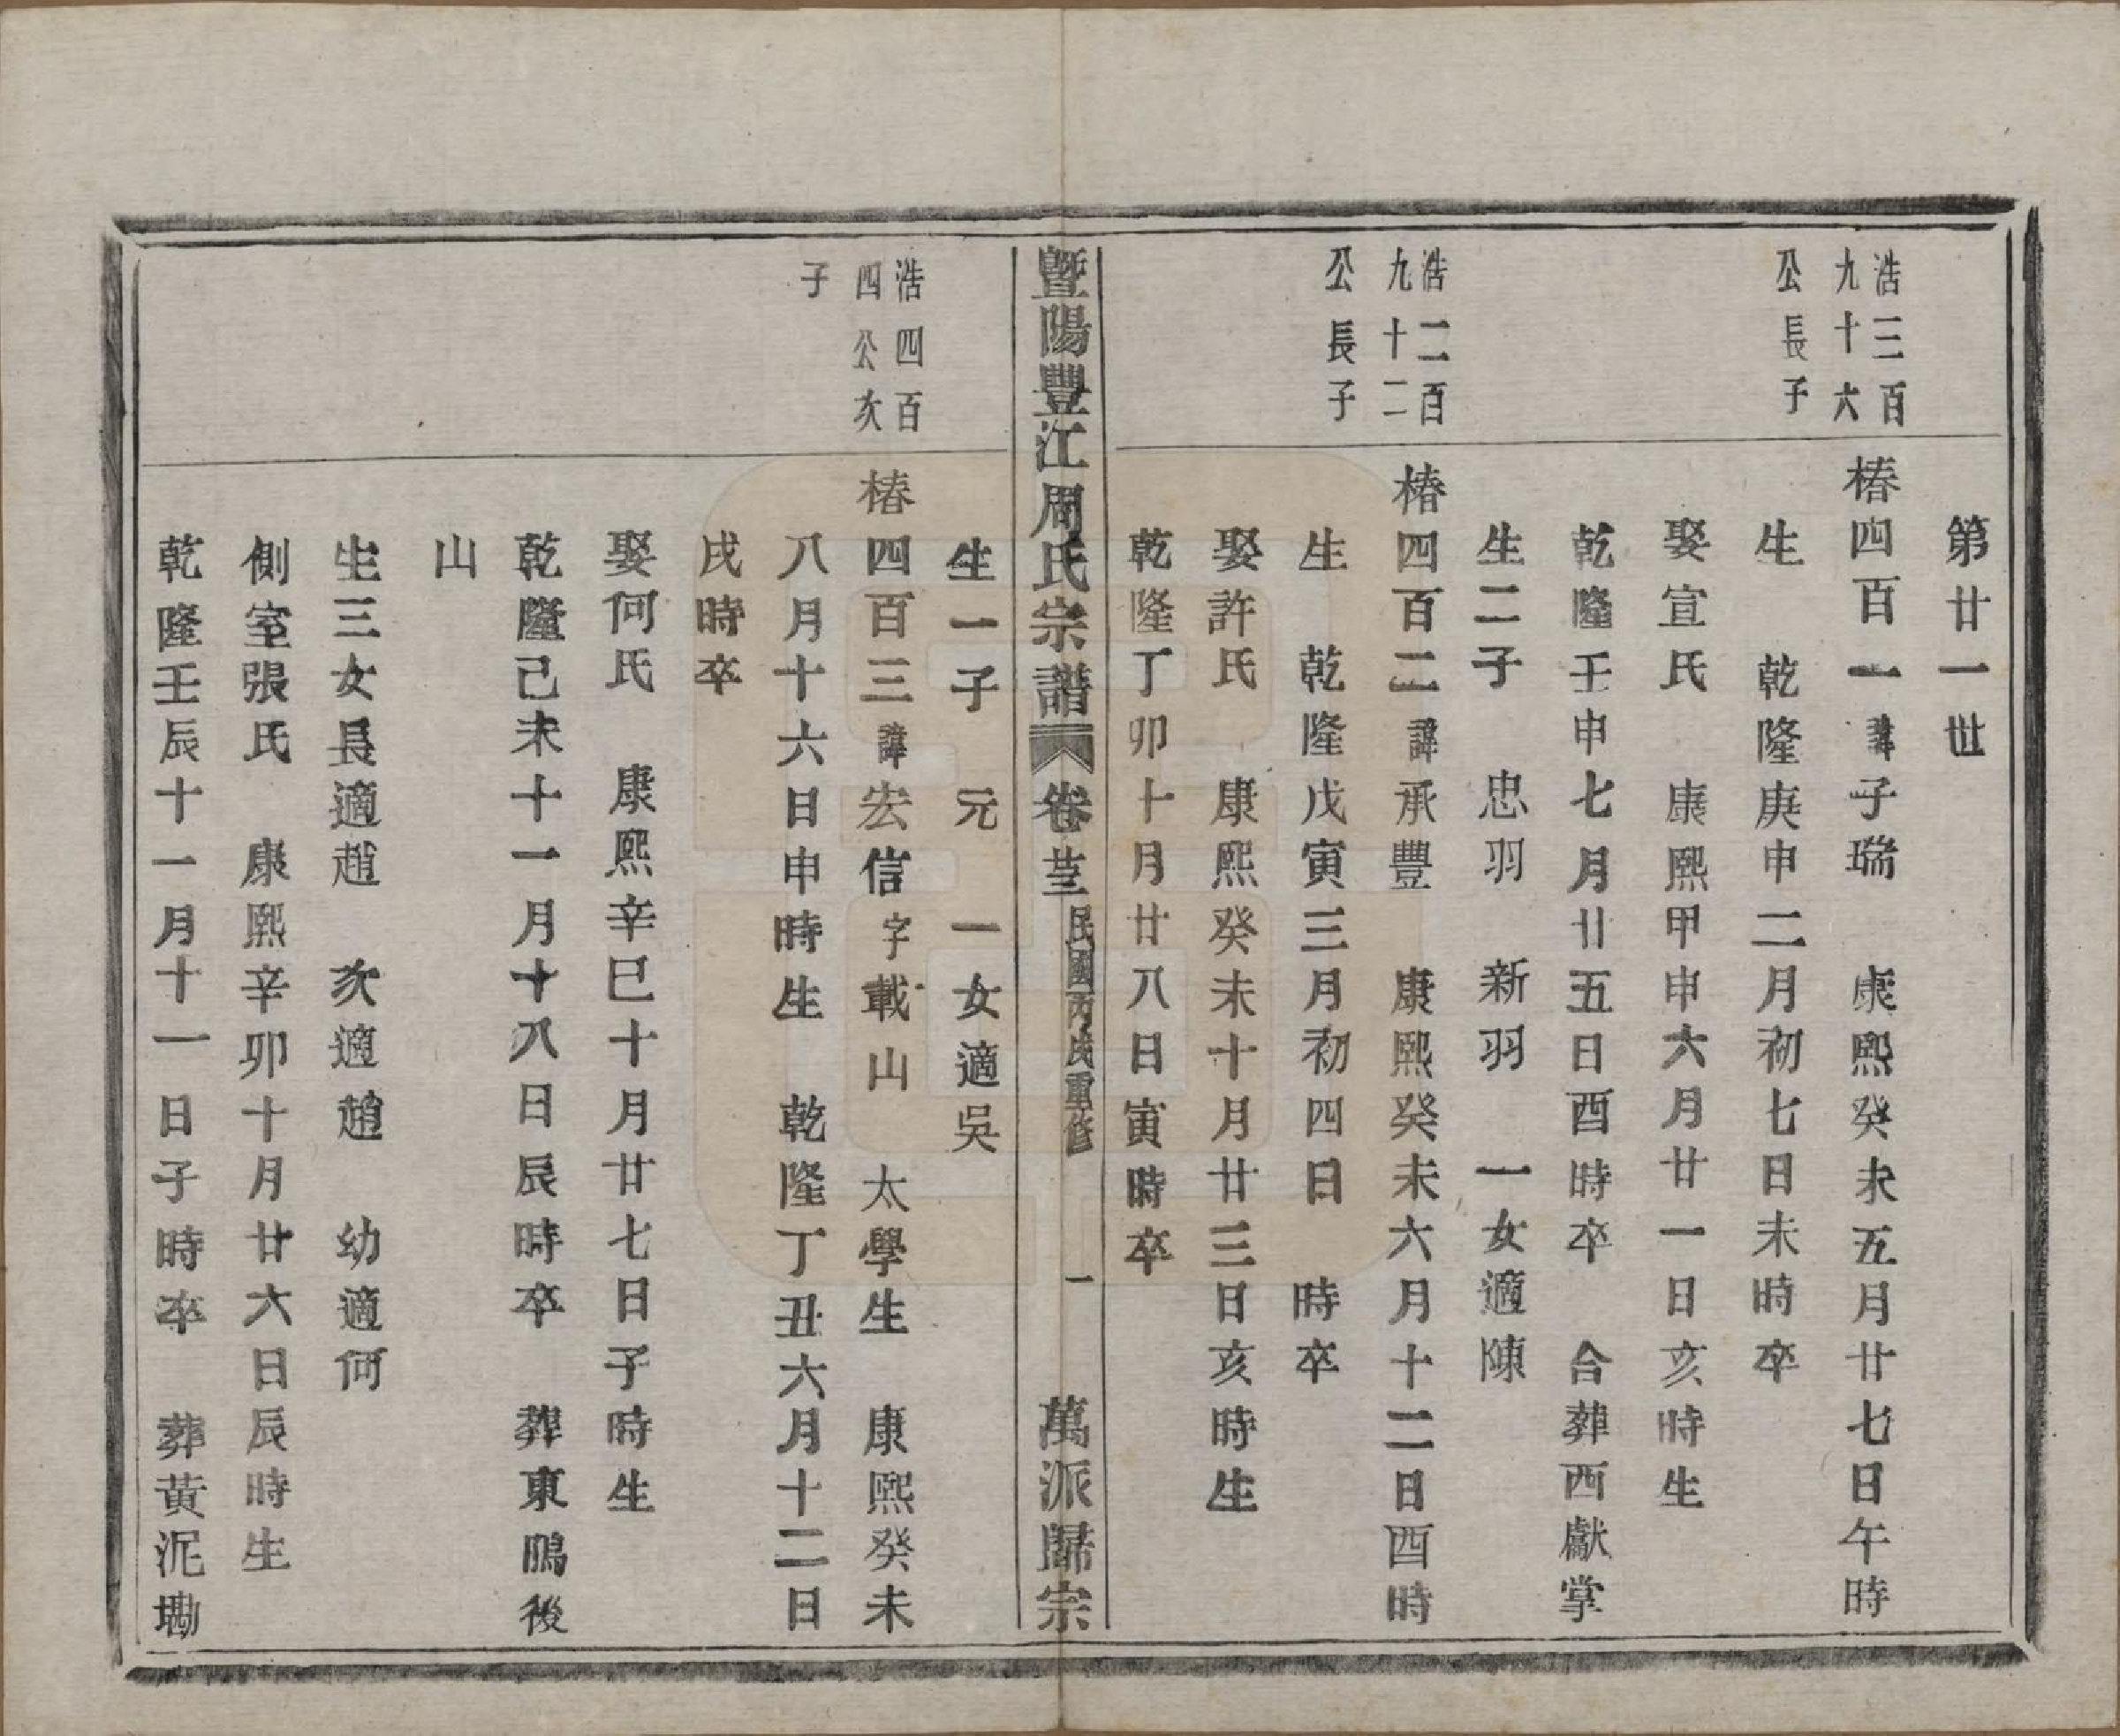 第廿一世
浩三百
九十六
公長子
椿四百一諱子瑞 康熙癸未五月廿七日午時
生 乾隆庚申二月初七日未時卒
娶宣氏 康熙甲申六月廿一日亥時生
乾隆壬申七月廿五日酉時卒 合葬西獻掌
生二子 忠羽 新羽 一女適陳
浩二百
九十二
公長子
椿四百二諱承豐 康熙癸未六月十二日酉時
生 乾隆戊寅三月初四日 時卒
娶許氏 康熙癸未十月廿三日亥時生
乾隆丁卯十月廿八日寅時卒
暨陽豐江周氏宗譜 卷廿三 民國丙戌重修 一 萬派歸宗
生一子 元 一女適吳
浩四百
四公次
子
椿四百三諱宏信字載山 太學生 康熙癸未
八月十六日申時生 乾隆丁丑六月十二日
戌時卒
娶何氏 康熙辛巳十月廿七日子時生
乾隆己未十一月十八日辰時卒 葬東鵰後
山
生三女長適趙 次適趙 幼適何
側室張氏 康熙辛卯十月廿六日辰時生
乾隆壬辰十一月十一日子時卒 葬黃泥墈